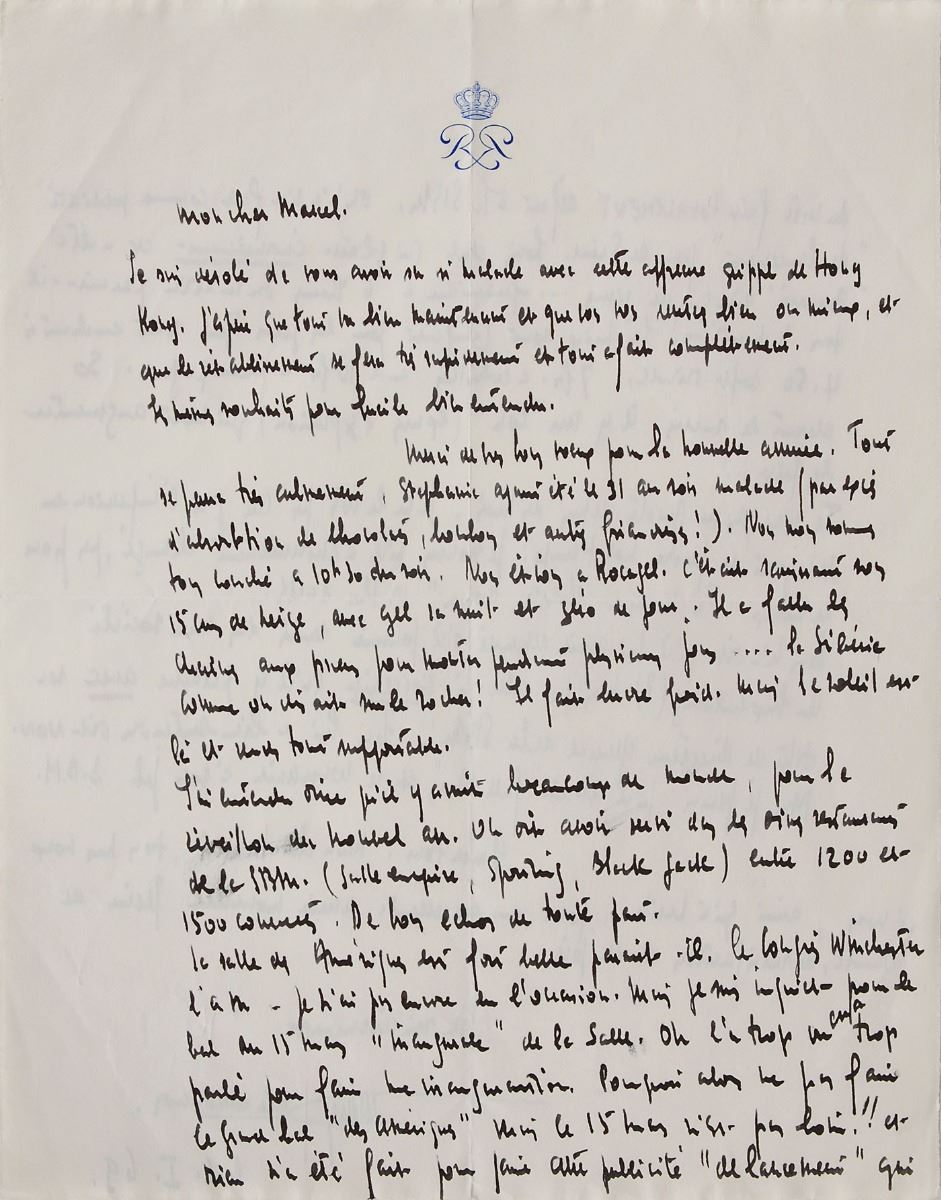 mon cher Marcel.
Je suis désolé de vous avoir su si malade avec cette affreuse grippe de Hong
Kong. J'espère que tout va bien maintenant et que vous vous sentez bien au mieux, et
que le rétablissement se fera très rapidement et tout à fait complètement.
Les mêmes souhaits pour Lucile bien entendu.
Merci de vos bons voeux pour la nouvelle année. Tout
se passa très calmement, Stephanie ayant été le 31 au soir malade (par excès
d'absorbtion de chocolats, bonbons et autres friandises!). Nous nous sommes
tous couchés a 10h30 du soir. Nous étions a Rocagel. C'était ravissant sous
15 cms de neige, avec gel la nuit et zéro de jour. Il a fallu les
chaines aux pneus pour monter pendant plusieurs jours .... la Sibérie
comme on disait sur le rocher! Il fait encore froid. Mais le soleil est
là et rends tout supportable.
J'ai entendu dire qu'il y avait beaucoup de monde, pour le
réveillon du nouvel an. On dit avoir servi dans les cinq restaurants
de la SBM. (Salle empire, Sporting, Black Jack) entre 1200 et
1500 couverts. De bons echos de toute part.
La salle des Amériques est fort belle parait-il. Le Congrès Winchester
l'a vu - je n'ai pas encore eu l'occasion. Mais je suis inquiet pour le
bal du 15 mars "inaugurale" de la Salle. On l'a trop vu et a trop
parlé pour faire une inauguration. Pourquoi alors ne pas faire
le grand bal "des Amériques" Mais le 15 mars n'est pas loin!! et
rien n'a été fait pour faire cette publicité "de lancement" qui